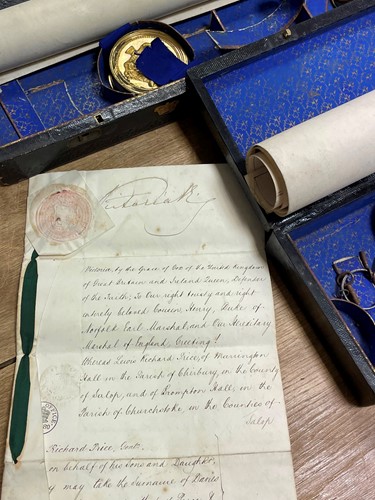 Victoria R
Victoria, by the Grace of God of the United Kingdom
of Great Britain and Ireland Queen, Defender
of the Faith; To Our right trusty and right
entirely beloved Cousin Henry, Duke of
Norfolk Earl Marshal, and Our Hereditary
Marshal of England Greeting!
Whereas Lewis Richard Price, of Marrington
Hall in the Parish of Chirbury, in the County
of Salop, and of Brompton Hall, in the
Parish of Churchstoke, in the Counties of
Salop
Richard Price, Gent.
on behalf of his sons and Daughter,
may take the Surname of Davies